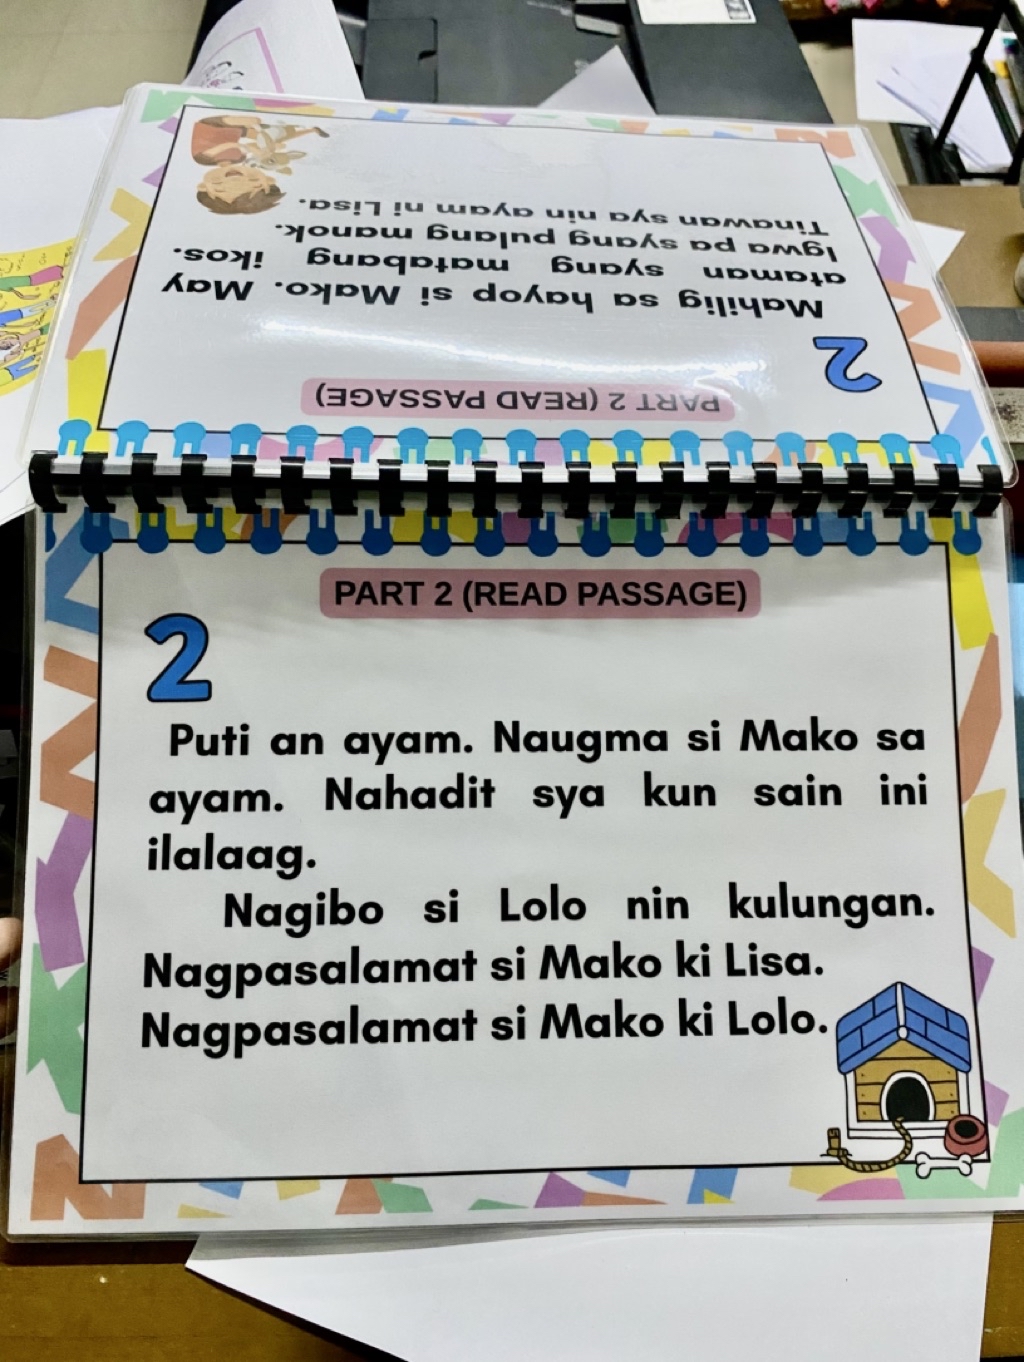 PART 2 (READ PASSAGE)
2
Mahilig sa hayop si Mako. May
ataman syang matabang ikos.
Igwa pa syang pulang manok.
Tinawan sya nin ayam ni Lisa.
PART 2 (READ PASSAGE)
2
Puti an ayam. Naugma si Mako sa
ayam. Nahadit sya kun sain ini
ilalaag.
Nagibo si Lolo nin kulungan.
Nagpasalamat si Mako ki Lisa.
Nagpasalamat si Mako ki Lolo.